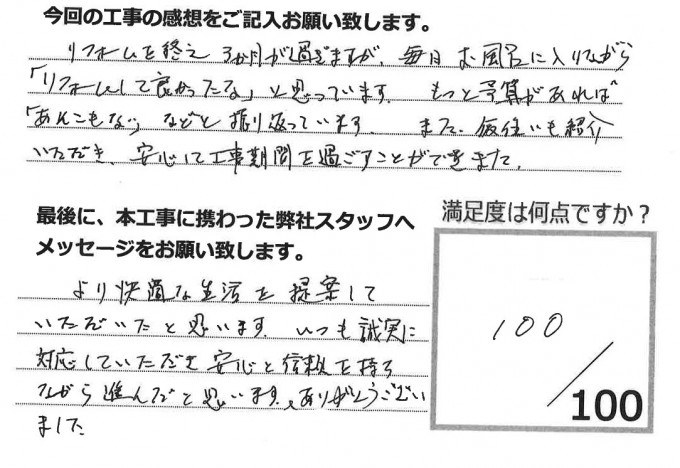 今回の工事の感想をご記入お願い致します。
リフォームを終え 3か月が過ぎますが、毎日 お風呂に入りながら
「リフォームして良かったな」と思っています。もっと予算があれば
「あんこもな」などと振り返っています。また、仮住いも紹介
いただき、安心して工事期間を過ごすことができました。
最後に、本工事に携わった弊社スタッフへ
メッセージをお願い致します。
より快適な生活を提案して
いただいたと思います。いつも誠実に
対応していただき安心と信頼を持ち
ながら進んだと思います。ありがとうござい
ました
満足度は何点ですか？
100
／100